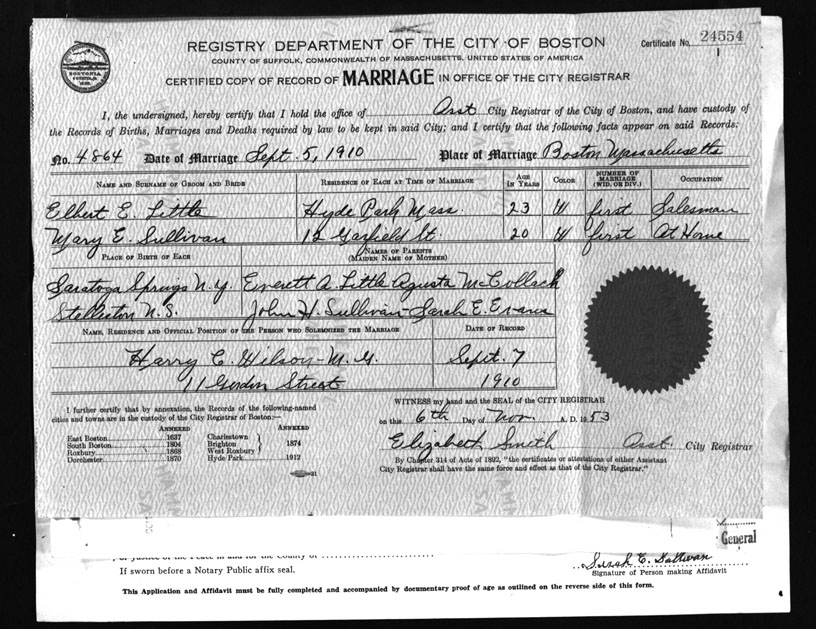 REGISTRY DEPARTMENT OF THE CITY OF BOSTON
Certificate No. 24554
COUNTY OF SUFFOLK, COMMONWEALTH OF MASSACHUSETTS, UNITED STATES OF AMERICA
CERTIFIED COPY OF RECORD OF MARRIAGE IN OFFICE OF THE CITY REGISTRAR
I, the undersigned, hereby certify that I hold the office of Asst City Registrar of the City of Boston, and have custody of
the Records of Births, Marriages and Deaths required by law to be kept in said City; and I certify that the following facts appear on said Records:
No. 4864 Date of Marriage Sept. 5, 1910 Place of Marriage Boston Massachusetts
NAME AND SURNAME OF GROOM AND BRIDE RESIDENCE OF EACH AT TIME OF MARRIAGE AGE IN YEARS COLOR NUMBER OF MARRIAGE (WID. OR DIV.) OCCUPATION
Elbert E. Little Hyde Park Mass 23 W first Salesman
Mary E. Sullivan 12 Garfield St. 20 W first At Home
PLACE OF BIRTH OF EACH NAMES OF PARENTS (MAIDEN NAME OF MOTHER)
Saratoga Springs N.Y. Everett A. Little Agusta McCollack
Stelleston N.S. John H. Sullivan Sarah E. Evans
NAME, RESIDENCE AND OFFICIAL POSITION OF THE PERSON WHO SOLEMNIZED THE MARRIAGE DATE OF RECORD
Harry C. Wilson - M.G. Sept. 7
11 Gordon Street 1910
I further certify that by annexation, the Records of the following-named
cities and towns are in the custody of the City Registrar of Boston:—
ANNEXED ANNEXED
East Boston 1637 Charlestown
South Boston 1804 Brighton 1874
Roxbury 1868 West Roxbury
Dorchester 1870 Hyde Park 1912
31
WITNESS my hand and the SEAL of the CITY REGISTRAR
on this 6th Day of Nov. A. D. 1953
Elizabeth Smith Asst. City Registrar
By Chapter 314 of Acts of 1892, "the certificates or attestations of either Assistant
City Registrar shall have the same force and effect as that of the City Registrar."
General
or Justice of the Peace in and for the County of
If sworn before a Notary Public affix seal.
Sarah E. Sullivan
Signature of Person making Affidavit
This Application and Affidavit must be fully completed and accompanied by documentary proof of age as outlined on the reverse side of this form.
4